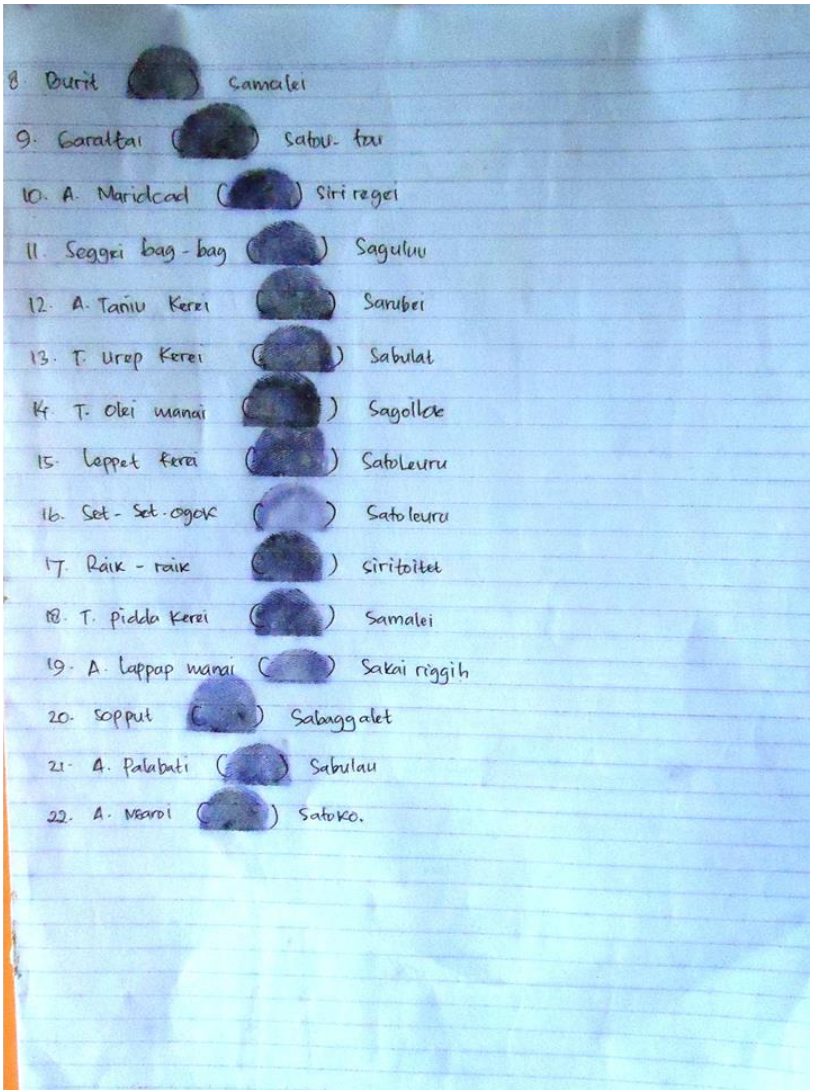 8. Burit ( ) Samalei
9. Garattai ( ) Satou-tou
10. A. Maridcad ( ) Siriregei
11. Seggei bag-bag ( ) Saguluu
12. A. Taniu Kerei ( ) Sarubei
13. T. urep Kerei ( ) Sabulat
14. T. Olei manai ( )
15. Leppet Kerei ( ) SatoLeuru
16. Set-Set-ogok ( ) Satoleuru
17. Raik-raik ( ) Siritoitet
18. T. pidda Kerei ( ) Samalei
19. A. Lappap manai ( ) Sakai riggih
20. Sopput ( ) Sabaggalet
21. A. Palabati ( ) Sabulau
22. A. ( ) Satoko.